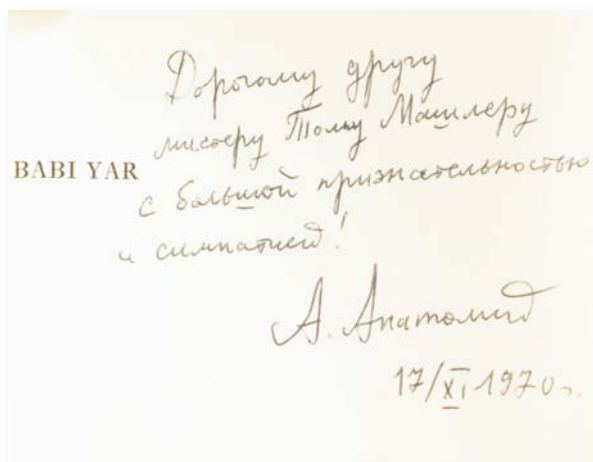 Дорогому другу
мистеру Тому Машлеру
BABI YAR
с большой признательностью
и симпатией!
А. Анатолий
17/XI 1970 г.